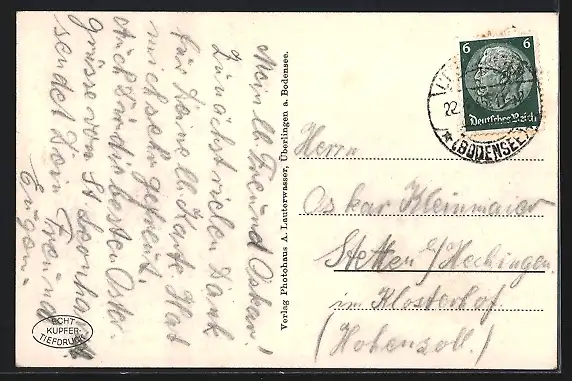 Mein lb. Freund Oskar!
Zunächst vielen Dank
für Deine lb. Karte. Hat
mich sehr gefreut.
Auch Dir die besten Oster-
grüsse von St. Leonhard
sendet Dein Freund
Eugen.
ECHT
KUPFER-
TIEFDRUCK
Verlag Photohaus A. Lauterwasser, Überlingen a. Bodensee.
6 6
Deutsches Reich
22.
(BODENSEE)
Herrn
Oskar Kleinmaier
Stetten b/Hechingen.
im Klosterhof
(Hohenzoll.)